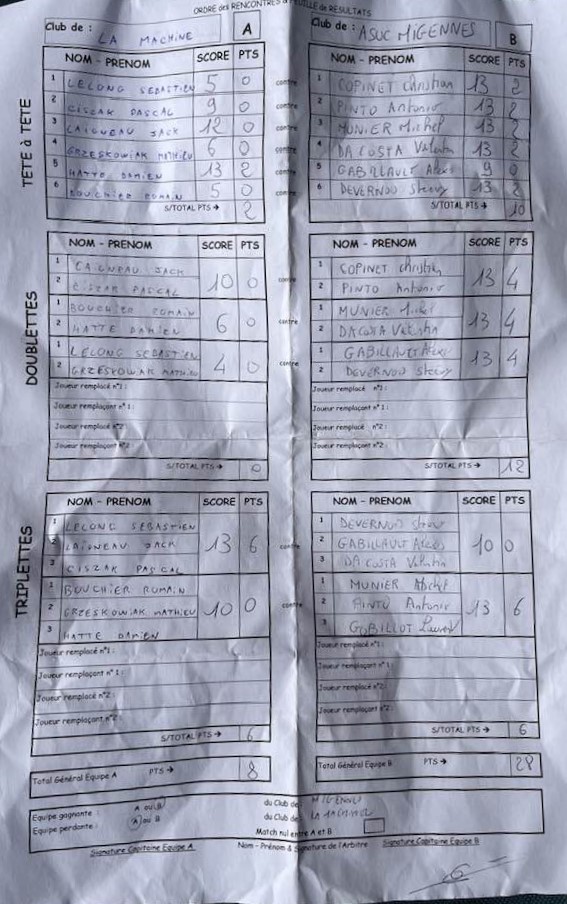 ORDRE des RENCONTRES & FEUILLE de RESULTATS
Club de : LA MACHINE A
Club de : ASUC MIGENNES B
TETE à TETE
NOM - PRENOM SCORE PTS NOM - PRENOM SCORE PTS
1 LELONG SEBASTIEN 5 0 contre 1 COPINET Christian 13 2
2 CISZAK PASCAL 9 0 contre 2 PINTO Antonio 13 2
3 CAIGNEAU JACK 12 0 contre 3 MUNIER Michel 13 2
4 GRZESKOWIAK MATHIEU 6 0 contre 4 DA COSTA Valentin 13 2
5 HATTE DAMIEN 13 2 contre 5 GABILLAULT Alexis 9 0
6 BOUCHIER ROMAIN 5 0 contre 6 DEVERNOD Steevy 13 2
S/TOTAL PTS → 2 S/TOTAL PTS → 10
DOUBLETTES
NOM - PRENOM SCORE PTS NOM - PRENOM SCORE PTS
1 CAIGNEAU JACK 1 COPINET Christian
2 CISZAK PASCAL 10 0 contre 2 PINTO Antonio 13 4
1 BOUCHIER ROMAIN 1 MUNIER Michel
2 HATTE DAMIEN 6 0 contre 2 DACOSTA Valentin 13 4
1 LELONG SEBASTIEN 1 GABILLAULT Alexis
2 GRZESKOWIAK MATHIEU 4 0 contre 2 DEVERNOD Steevy 13 4
Joueur remplacé n°1 : Joueur remplacé n°1 :
Joueur remplaçant n° 1 : Joueur remplaçant n° 1 :
Joueur remplacé n°2 : Joueur remplacé n°2 :
Joueur remplaçant n°2 Joueur remplaçant n°2 :
S/TOTAL PTS → 0 S/TOTAL PTS → 12
TRIPLETTES
NOM - PRENOM SCORE PTS NOM - PRENOM SCORE PTS
1 LELONG SEBASTIEN 1 DEVERNOD Steevy
2 LAIGNEAU JACK 13 6 contre 2 GABILLAULT Alexis 10 0
3 CISZAK PASCAL 3 DA COSTA Valentin
1 BOUCHIER ROMAIN 1 MUNIER Michel
2 GRZESKOWIAK MATHIEU 10 0 contre 2 PINTO Antonio 13 6
3 HATTE DAMIEN 3 GOBILLOT Laurent
Joueur remplacé n°1 : Joueur remplacé n°1 :
Joueur remplaçant n° 1 : Joueur remplaçant n°1 :
Joueur remplacé n°2 : Joueur remplacé n°2 :
Joueur remplaçant n°2 : Joueur remplaçant n°2 :
S/TOTAL PTS → 6 S/TOTAL PTS → 6
Total Général Equipe A PTS → 8 Total Général Equipe B PTS → 28
Equipe gagnante : A ou B du Club de : MIGENNES
Equipe perdante : A ou B du Club de : LA MACHINE
Match nul entre A et B
Signature Capitaine Equipe A Nom - Prénom & Signature de l'Arbitre Signature Capitaine Equipe B